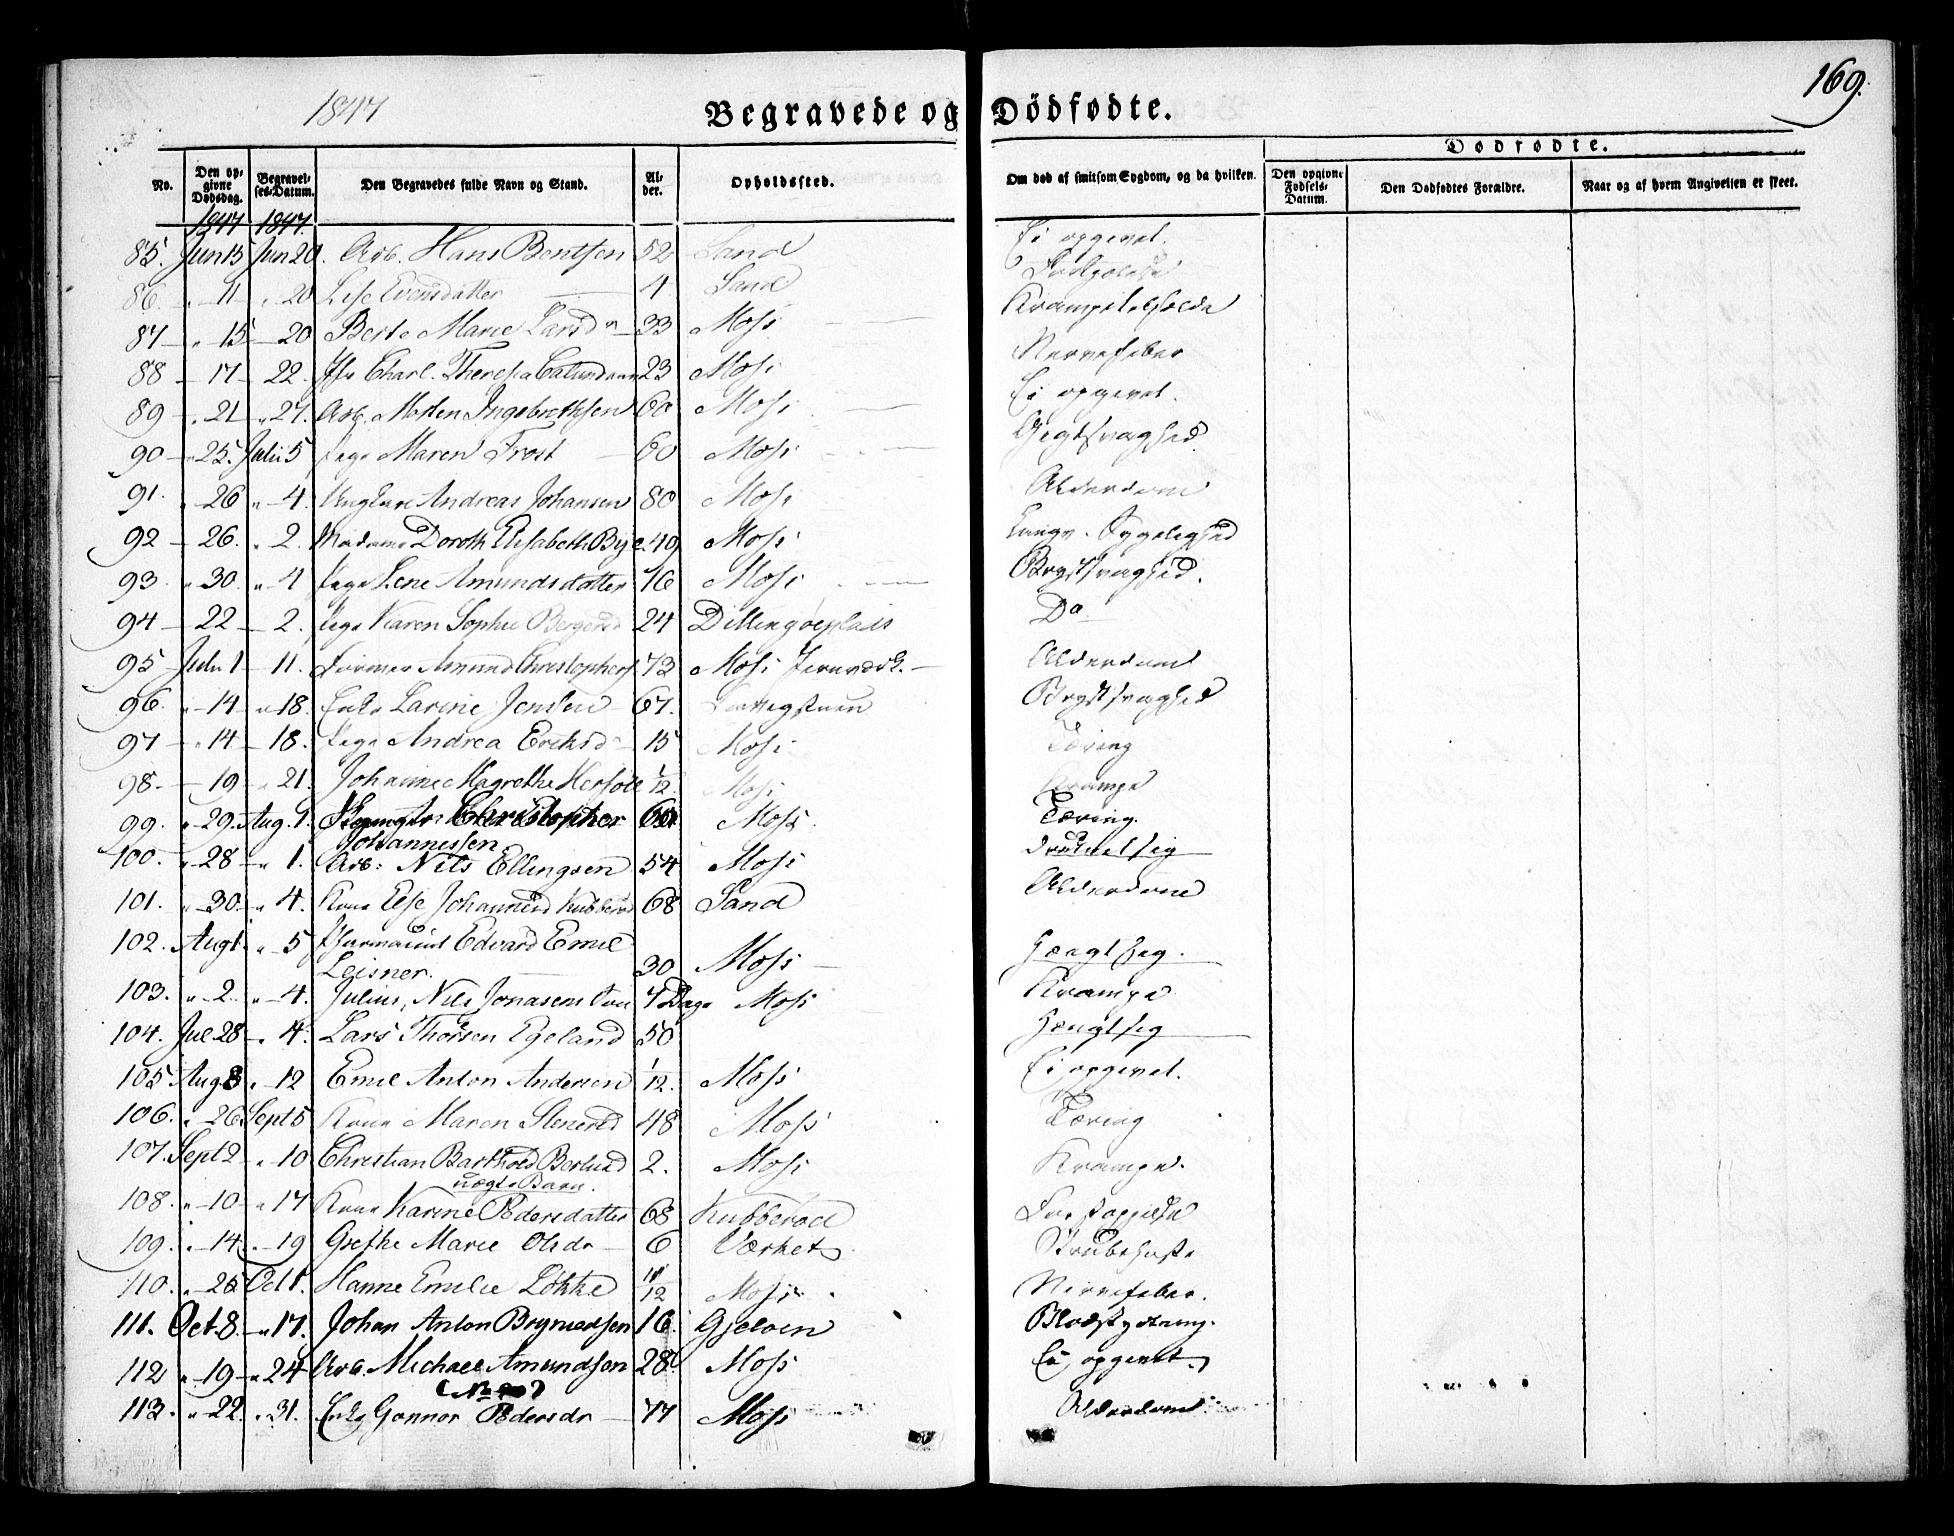 169.
1847
Begravede og Dödfødte.
Dødfødte.
No. | Den opgivne Dødsdag. | Begravelses-Datum. | Den Begravedes fulde Navn og Stand. | Alder. | Opholdssted. | Om død af smitsom Sygdom, og da hvilken. | Den opgivne Fødsels-Datum. | Den Dødfødtes Forældre. | Naar og af hvem Angivelsen er skeet.
1847 1847.
85. Jun 15 Jun 20. Arb. Hans Bentsen 52 Sand Ei opgivet.
86. " 11 " 20 Lise Evensdatter 4 Sand
87 " 15 20 Berte Marie Larsd 33 Moss
88 17 22. Jfr Charl. Theresia 23 Moss Nervefeber
89 " 21 " 27. Arb. Morten Ingebrethsen 60 Moss Ei opgivet.
90 " 25. Julii 5 Pige Maren Frost 60 Moss Gigtsvaghed
91. " 26 " 4. Andreas Johansen 80 Moss Alderdom
92 26. " 2. Madame Doroth Elisabeth Bye 49 Moss Langv. Sygelighed
93 " 30 " 4 Pige Lene Amundsdatter 16 Moss Brystsvaghed.
94 22 2. Pige Karen Sophie Bergersd 24 Dillingöeplads Do
95 Juli 1 11. Former Amund Christophers. 73 Moss Jernværk. Alderdom
96. " 14 " 18. Enke Larine Jensen 67. Brystsvaghed
97 " 14 18. Pige Andrea Eriksd 15 Moss Tæring
98. 19 " 21. Johanne Magrethe 1/12. Moss Krampe
99. " 29. Aug. 1. Christopher Moss. Tæring.
Johannessen
100. " 28 " 1. Arb: Nils Ellingsen 54 Moss druknet sig
101. " 30. " 4. Kone Else Johannesd Kubberöd 68 Sand Alderdom
102. Aug 1 " 5 Pharmaceut Edvard Emil
Leisner. 30 Moss Hængt sig.
103. " 2. " 4. Julius, Nils Jonasens Søn 7 Dage Moss Krampe
104. Jul. 28 " 4. Lars Thorsen Egeland 50 Hængt sig
105 Aug 8 " 12 Emil Anton Andersen 1/12. Moss Ei opgivet.
106. " 26 Sept 5 Kone Maren Stenersd 48 Moss Tæring
107. Sept 2 " 10 Christian Barthold Berlund 2. Moss Krampe.
uægte Barn.
108. " 10 " 17 Kone Karine Pedersdatter 68 Kubberöd Forstoppelse
109. " 14 " 19 Grethe Marie Olsdr 6 Værket Strubehoste
110. " 25 Oct 1. Hanne Emilie Løkke 11/12 Moss Nervefeber.
111. Oct. 8. " 17. Johan Anton Brynildsen 16. Gjeløen Blodstyrtning.
112 " 19 " 24 Arb. Michael Amundsen 28 Moss Ei opgivet.
113. " 22. " 31. Enke Gonnor Pedersdr 77 Moss Alderdom